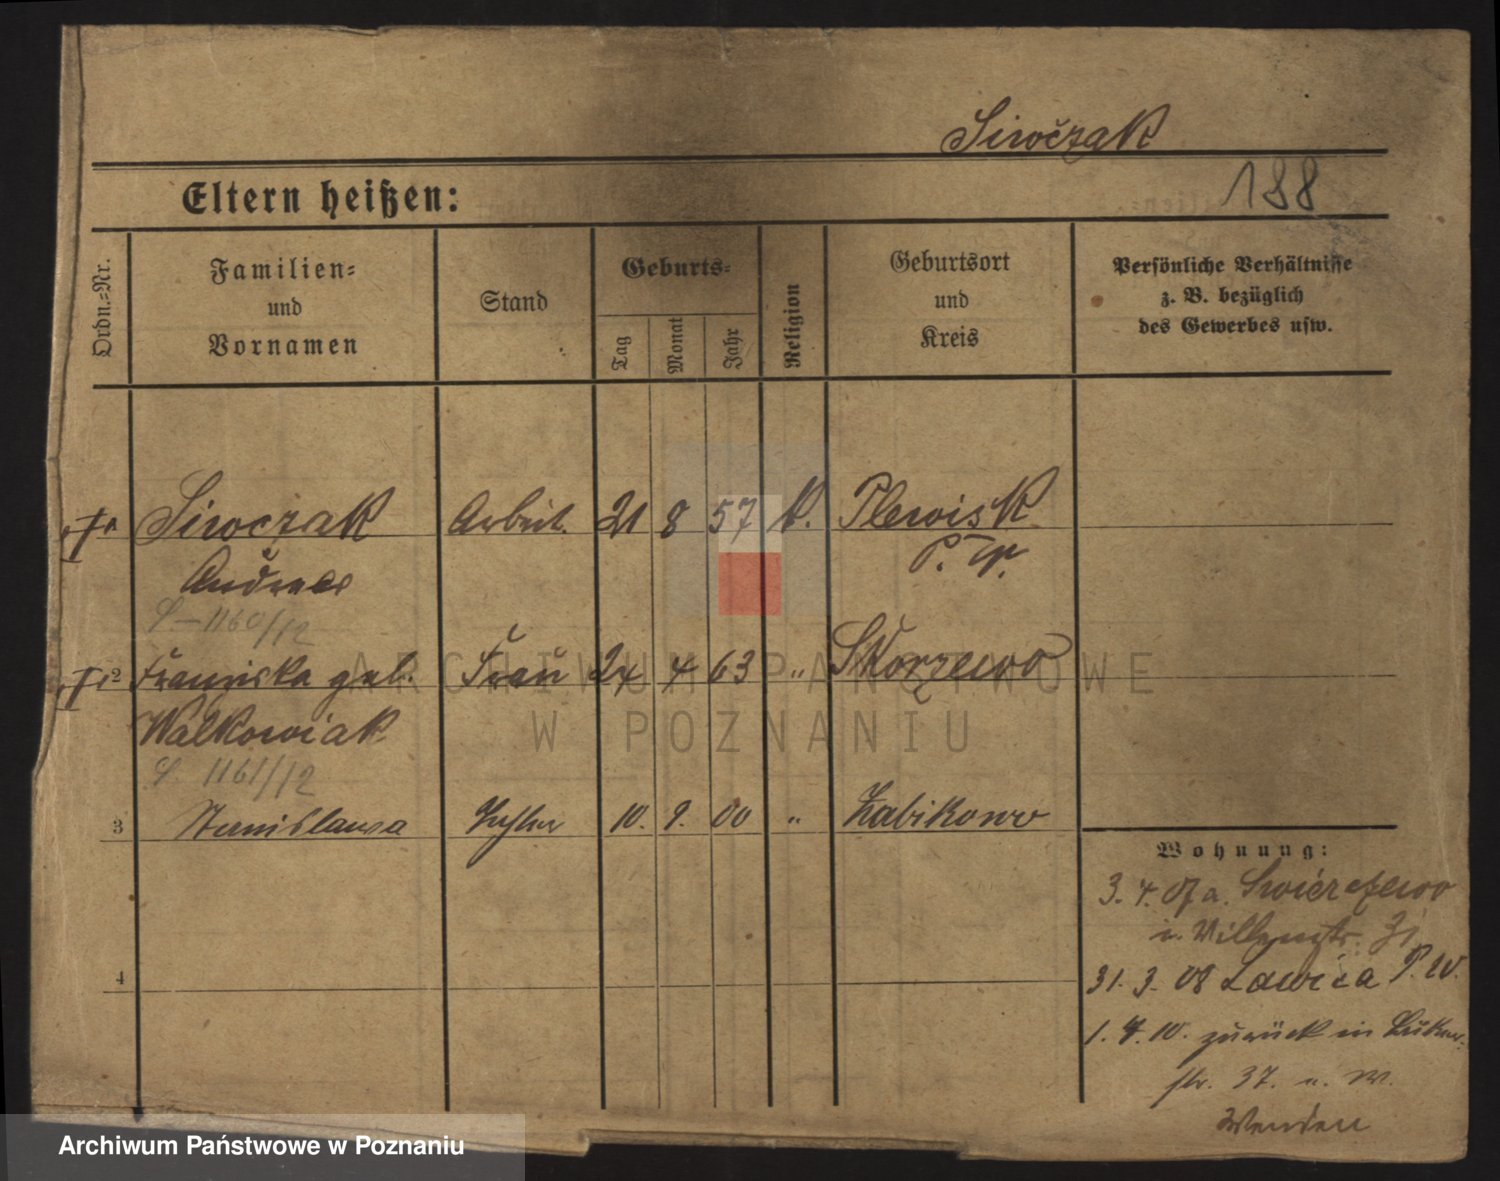 Siwczak
188
Eltern heißen:
Ordn.=Nr.
Familien=
und
Vornamen
Stand
Geburts=
Tag
Monat
Jahr
Religion
Geburtsort
und
Kreis
Persönliche Verhältnisse
z. B. bezüglich
des Gewerbes usw.
Siwczak Arbeit. 21 8 57 k. Plewisk
Andreas P. W.
1160/12
2 Franziska geb. Frau 24 4 63 " Skorzewo
Walkowiak
1161/12
3 Stanislawa Tochter 10. 9. 00 " Zabikowo
4
Wohnung:
3. 4. 07 a.
31. 3. 08 Lawica P. W.
1. 4. 10. zurück in
str. 37. u. W.
ARCHIWUM PAŃSTWOWE
W POZNANIU
Archiwum Państwowe w Poznaniu